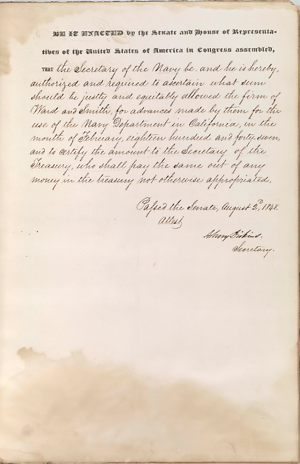 BE IT ENACTED by the Senate and House of Representa-
tives of the United States of America in Congress assembled,
THAT the Secretary of the Navy be, and he is hereby,
authorized and required to ascertain what sum
should be justly and equitably allowed the firm of
Ward and Smith, for advances made by them for the
use of the Navy Department in California, in the
month of February, eighteen hundred and forty seven,
and to certify the amount to the Secretary of the
Treasury, who shall pay the same out of any
money in the treasury not otherwise appropriated.
Passed the Senate, August 2d. 1848.
Attest,
Asbury Dickins.
Secretary.